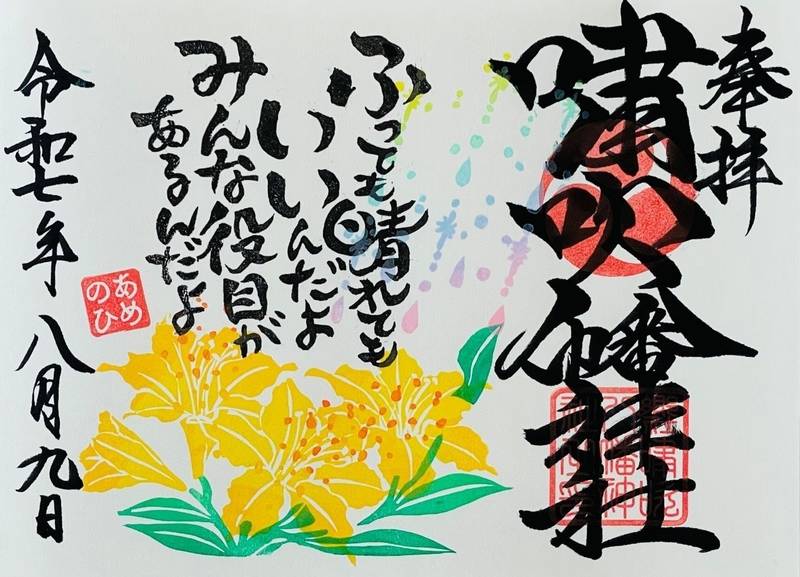 奉拝
嘯吹八幡神社
ふっても晴れても
いいんだよ
みんな役目が
あるんだよ
あめ
のひ
令和七年八月九日